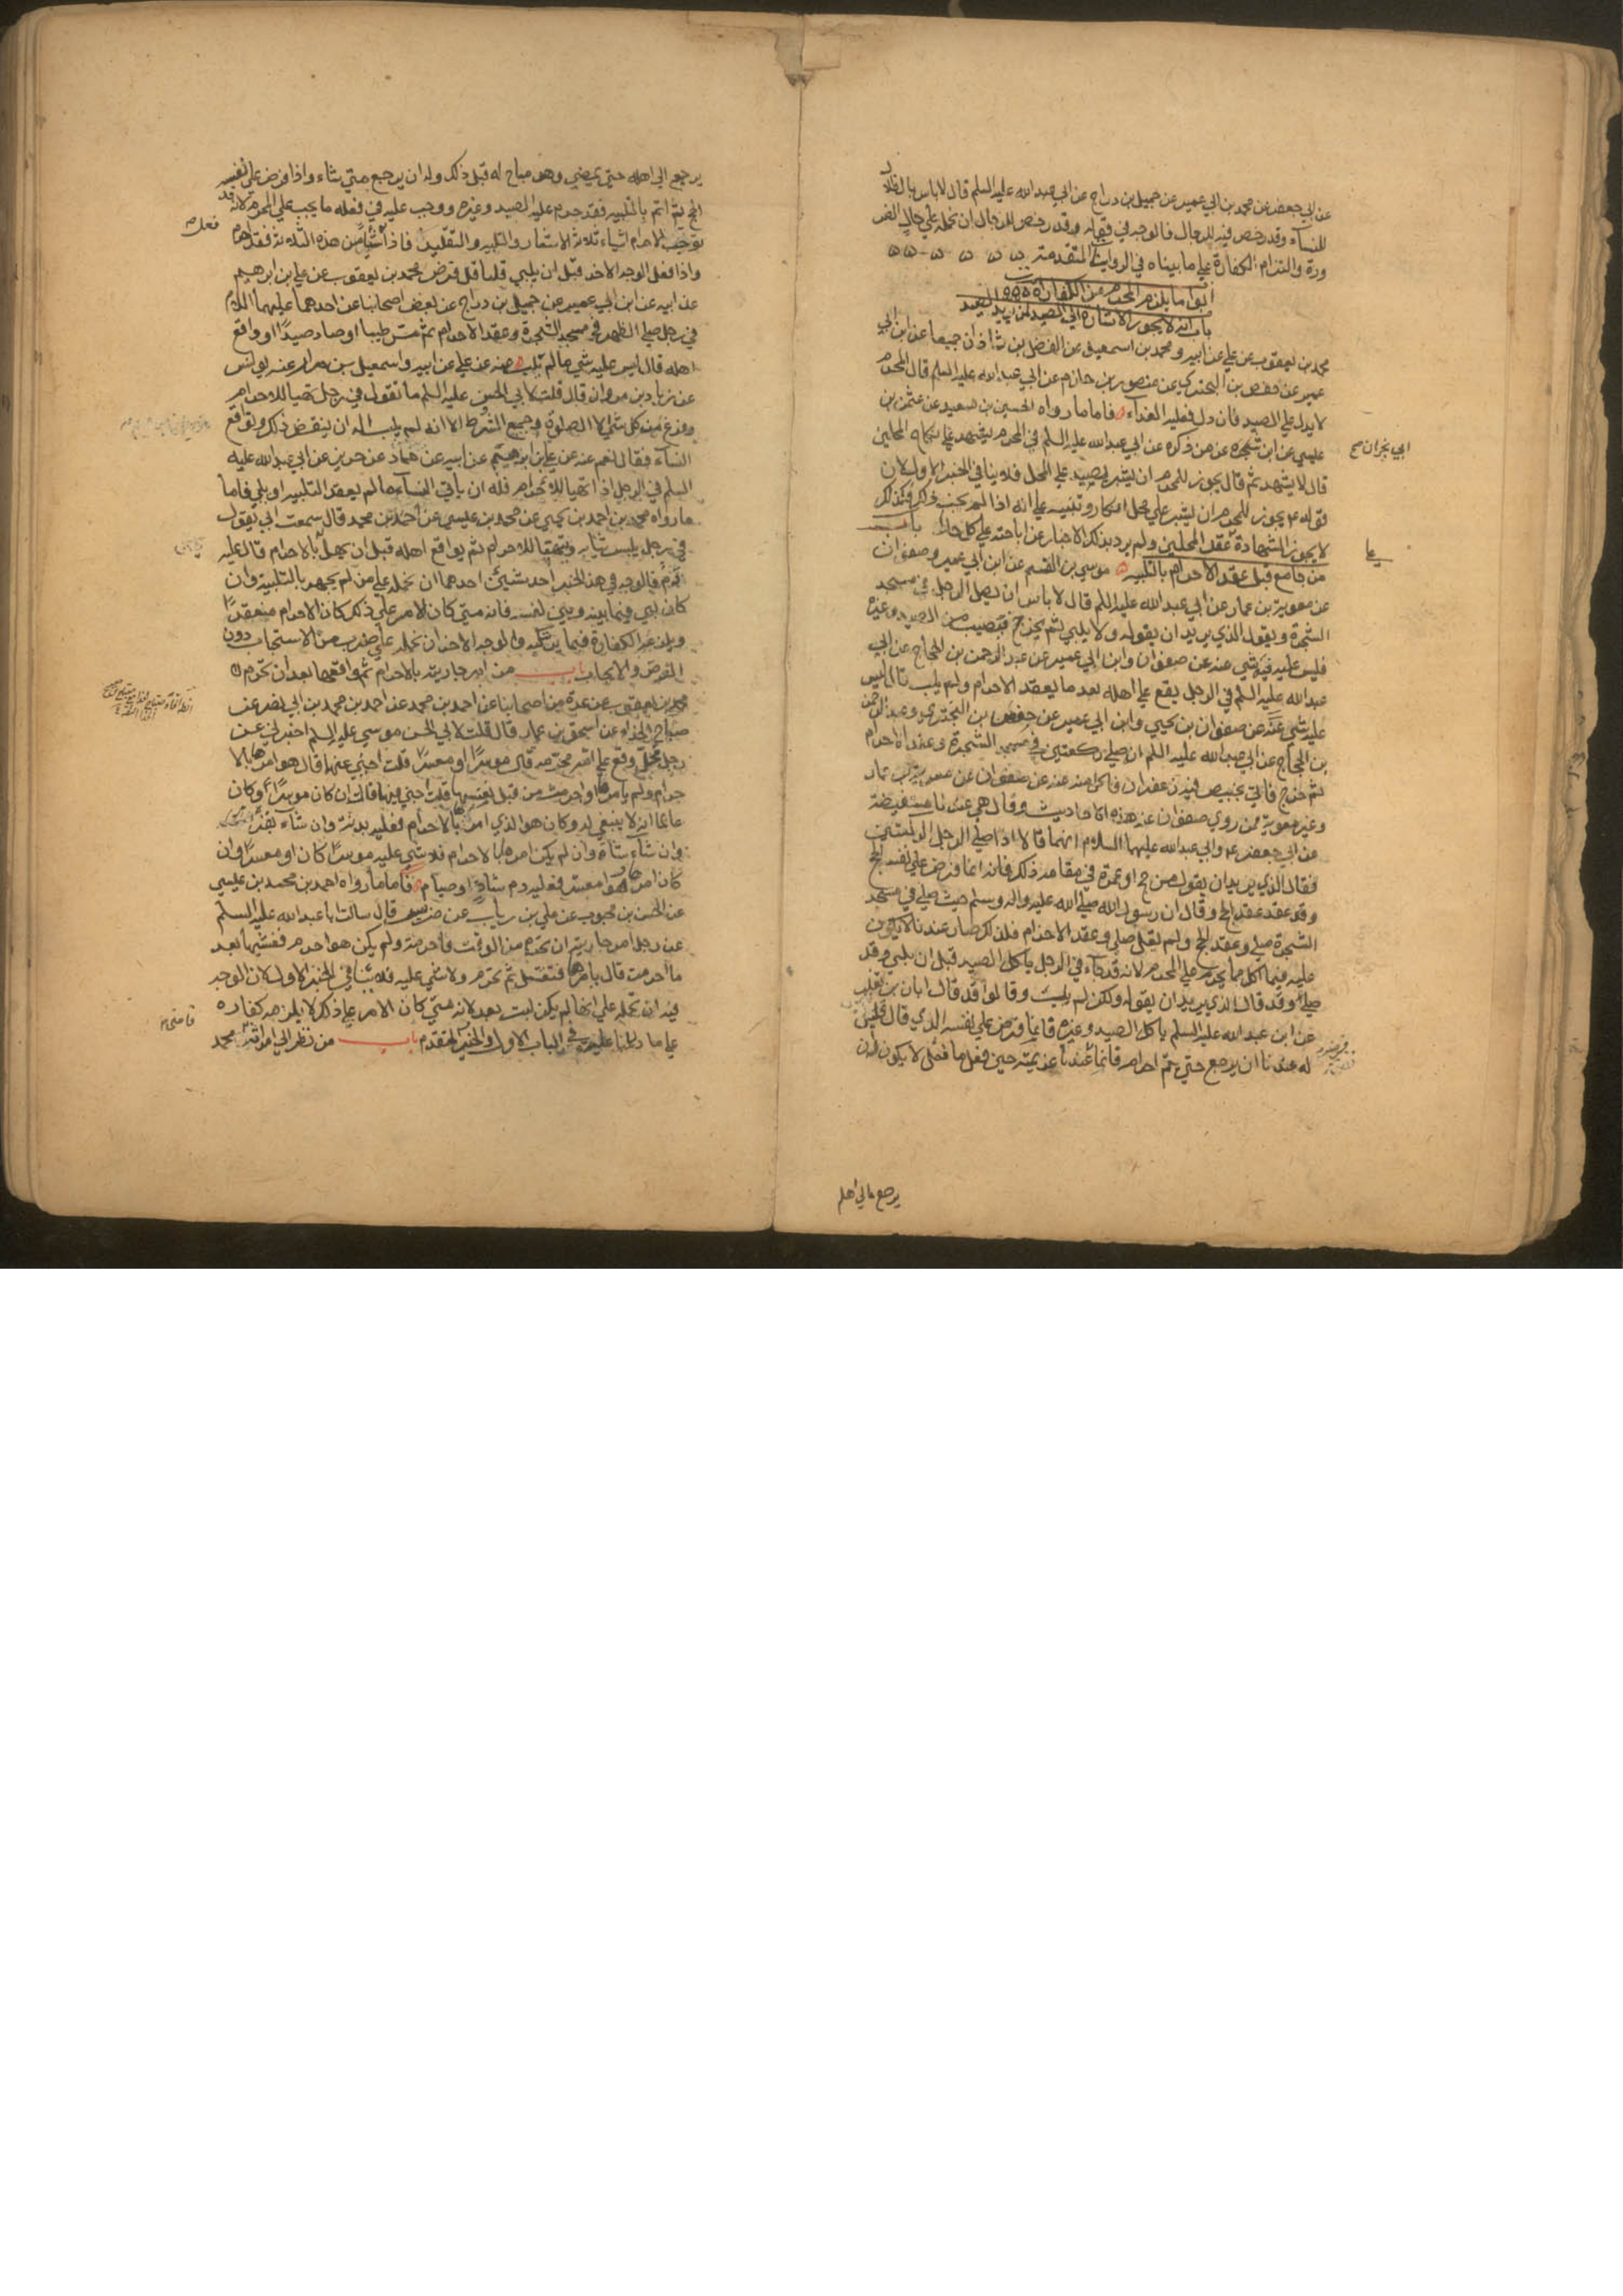 عن ابي جعفر عن محمد بن ابي عمير عن جميل بن دراج عن ابي عبد الله عليه السلم قال لا باس بالظلال
للنسآء وقد رخص فيه للرجال فالوجه في قوله وقد رخص للرجال ان نحمله علي حال الضر
ورة والتزام الكفارة علي ما بيناه في الروايات المتقدمة
ابواب ما يلزم المحرم من الكفارات
باب انه لا يجوز الاشارة الي الصيد لمن يريد الصيد
محمد بن يعقوب عن علي عن ابيه ومحمد بن اسمعيل عن الفضل بن شاذان جميعا عن ابن ابي
عمير عن حفص بن البختري عن منصور بن حازم عن ابي عبد الله عليه السلم قال المحرم
لا يدل علي الصيد فان دل فعليه الفدآء فاما ما رواه الحسين بن سعيد عن عثمن بن
عيسي عن ابن شجرة عن من ذكره عن ابي عبد الله عليه السلم في المحرم يشهد علي نكاح المحلين
ابي نجران ح
قال لا يشهد ثم قال يجوز للمحرم ان يشير بصيد علي المحل فلا ينافي الخبر الاول لان
قوله ع يجوز للمحرم ان يشير علي محل انكار وتنبيه علي انه اذا لم يجب ذلك فكذلك
لا يجوز الشهادة عقد المحلين ولم يرد بذلك الاخبار عن اباحته علي كل حال باب
من جامع قبل عقد الاحرام بالتلبية موسي بن القسم عن ابن ابي عمير وصفوان
عن معوية بن عمار عن ابي عبد الله عليه السلم قال لا باس ان يصلي الرجل في مسجد
الشجرة ويقول الذي يريد ان يقوله ولا يلبي ثم يخرج فيصيب من الصيد وغيره
فليس عليه فيه شي عنه عن صفوان وابن ابي عمير عن عبد الرحمن بن الحجاج عن ابي
عبد الله عليه السلم في الرجل يقع علي اهله بعد ما يعقد الاحرام ولم يلب قال ليس
عليه شي عنه عن صفوان بن يحيي وابن ابي عمير عن حفص بن البختري وعبد الرحمن
بن الحجاج عن ابي عبد الله عليه السلم انه صلي ركعتين في مسجد الشجرة وعقد الاحرام
ثم خرج فاتي بخبيص فيه زعفران فاكل منه عنه عن صفوان عن معوية بن عمار
وغير معوية ممن روي صفوان عنه هذه الاحاديث وقال هي عندنا مستفيضة
عن ابي جعفر ع وابي عبد الله عليهما السلام انهما قالا اذا صلي الرجل الركعتين
فقال الذي يريد ان يقول من حج او عمرة في مقامه ذلك فانه انما فرض علي نفسه الحج
وقد عقد عقد الحج وقال ان رسول الله صلي الله عليه واله وسلم حيث صلي في مسجد
الشجرة صلي وعقد الحج ولم يقل صلي وعقد الاحرام فلذلك صار عندنا لا يكون
عليه فيما اكل مما يحرم علي المحرم لانه قد جآء في الرجل ياكل الصيد قبل ان يلبي وقد
صلي وقد قال الذي يريد ان يقوله ولكن لم يلب وقالوا قد قال ابان بن تغلب
عن ابي عبد الله عليه السلم ياكل الصيد وغيره فانما فرض علي نفسه الذي قال فليس
له عندنا ان يرجع حتي يتم احرامه فانما عندنا عزيمته حين فعل ما فعل لا يكون له ان
يرجع الي اهله
يرجع الي اهله حتي يمضي وهو مباح له قبل ذلك وله ان يرجع متي شاء واذا فرض علي نفسه
الحج ثم اتم بالتلبية فقد حرم عليه الصيد وغيره ووجب عليه في فعله ما يجب علي المحرم لانه قد
يوجب الاحرام اشياء ثلاثة الاشعار والتلبية والتقليد فاذا فعل شيأ من هذه الثلاثة فقد احرم
واذا فعل الوجه الاخر قبل ان يلبي فلبي فقد فرض محمد بن يعقوب عن علي بن ابرهيم
عن ابيه عن ابن ابي عمير عن جميل بن دراج عن بعض اصحابنا عن احدهما عليهما السلام
في رجل صلي الظهر في مسجد الشجرة وعقد الاحرام ثم مس طيبا او صاد صيدا او واقع
اهله قال ليس عليه شي ما لم يلب عنه عن علي عن ابيه واسمعيل بن مرار عن يونس
عن زياد بن مروان قال قلت لابي الحسن عليه السلم ما تقول في رجل تهيا للاحرام
وفرغ من كل شي الا الصلوة وجميع الشرط الا انه لم يلب اله ان ينقض ذلك ويواقع
النسآء فقال نعم عنه عن علي بن ابرهيم عن ابيه عن حماد عن حريز عن ابي عبد الله عليه
السلم في الرجل اذا تهيا للاحرام فله ان ياتي النسآء ما لم يعقد التلبية او يلبي فاما
ما رواه محمد بن احمد بن يحيي عن محمد بن عيسي عن احمد بن محمد قال سمعت ابي يقول
في رجل يلبس ثيابه ويتهيا للاحرام ثم يواقع اهله قبل ان يهل بالاحرام قال عليه
دم فالوجه في هذا الخبر احد شيئين احدهما ان نحمله علي من لم يجهر بالتلبية وان
كان لبي فيما بينه وبين نفسه فانه متي كان الامر علي ذلك كان الاحرام منعقدا
ويلزمه الكفارة فيما يرتكبه والوجه الاخر ان نحمله علي ضرب من الاستحباب دون
الفرض والايجاب باب من امر جاريته بالاحرام ثم واقعها بعد ان تحرم
محمد بن يعقوب عن عدة من اصحابنا عن احمد بن محمد عن احمد بن محمد بن ابي نصر عن
صباح الحذاء عن اسحق بن عمار قال قلت لابي الحسن موسي عليه السلم اخبرني عن
رجل محل وقع علي امة محرمة قال موسرا او معسرا قلت اجبني عنهما قال هو امرها بالا
حرام او لم يامرها او احرمت من قبل نفسها قلت اجبني فيهما قال ان كان موسرا وكان
عالما انه لا ينبغي له وكان هو الذي امرها بالاحرام فعليه بدنة وان شآء بقرة
وان شآء شاة وان لم يكن امرها بالاحرام فلا شي عليه موسرا كان او معسرا وان
كان امرها وهو معسر فعليه دم شاة او صيام فاما ما رواه احمد بن محمد بن عيسي
عن الحسن بن محبوب عن علي بن رياب عن ضريس قال سالت ابا عبد الله عليه السلم
عن رجل امر جاريته ان تحرم من الوقت فاحرمت ولم يكن هو احرم فغشيها بعد
ما احرمت قال يامرها فتغتسل ثم تحرم ولا شي عليه فلا ينافي الخبر الاول لان الوجه
فيه ان نحمله علي انها لم يكن لبت بعد لانه متي كان الامر علي ذلك لا يلزمه كفارة
علي ما دللنا عليه في الباب الاول والخبر المتقدم باب من نظر الي امراته محمد